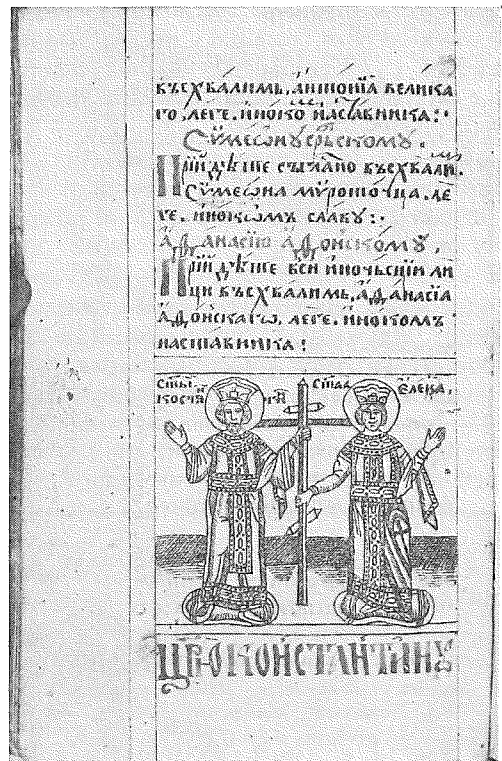 въсхвалимь. а҆нтонїа велика
го, леге. и҆ноко наставника :·
Сѵмеѡнꙋ срьскомꙋ.
Прїидѣте съглано въсхвали.
Сѵмеѡна мѵроточца. ле
ге. и҆нокѡмъ славꙋ :·
аѳанасїю аѳонскомꙋ,
Прїидѣте вси иночьсїи ли
ци въсхвалимь. аѳанасїа
аѳонскагѡ, леге. и҆нокомъ
наставника :
Ст҃ы
Ст҃аа Елена,
Црю Константинꙋ